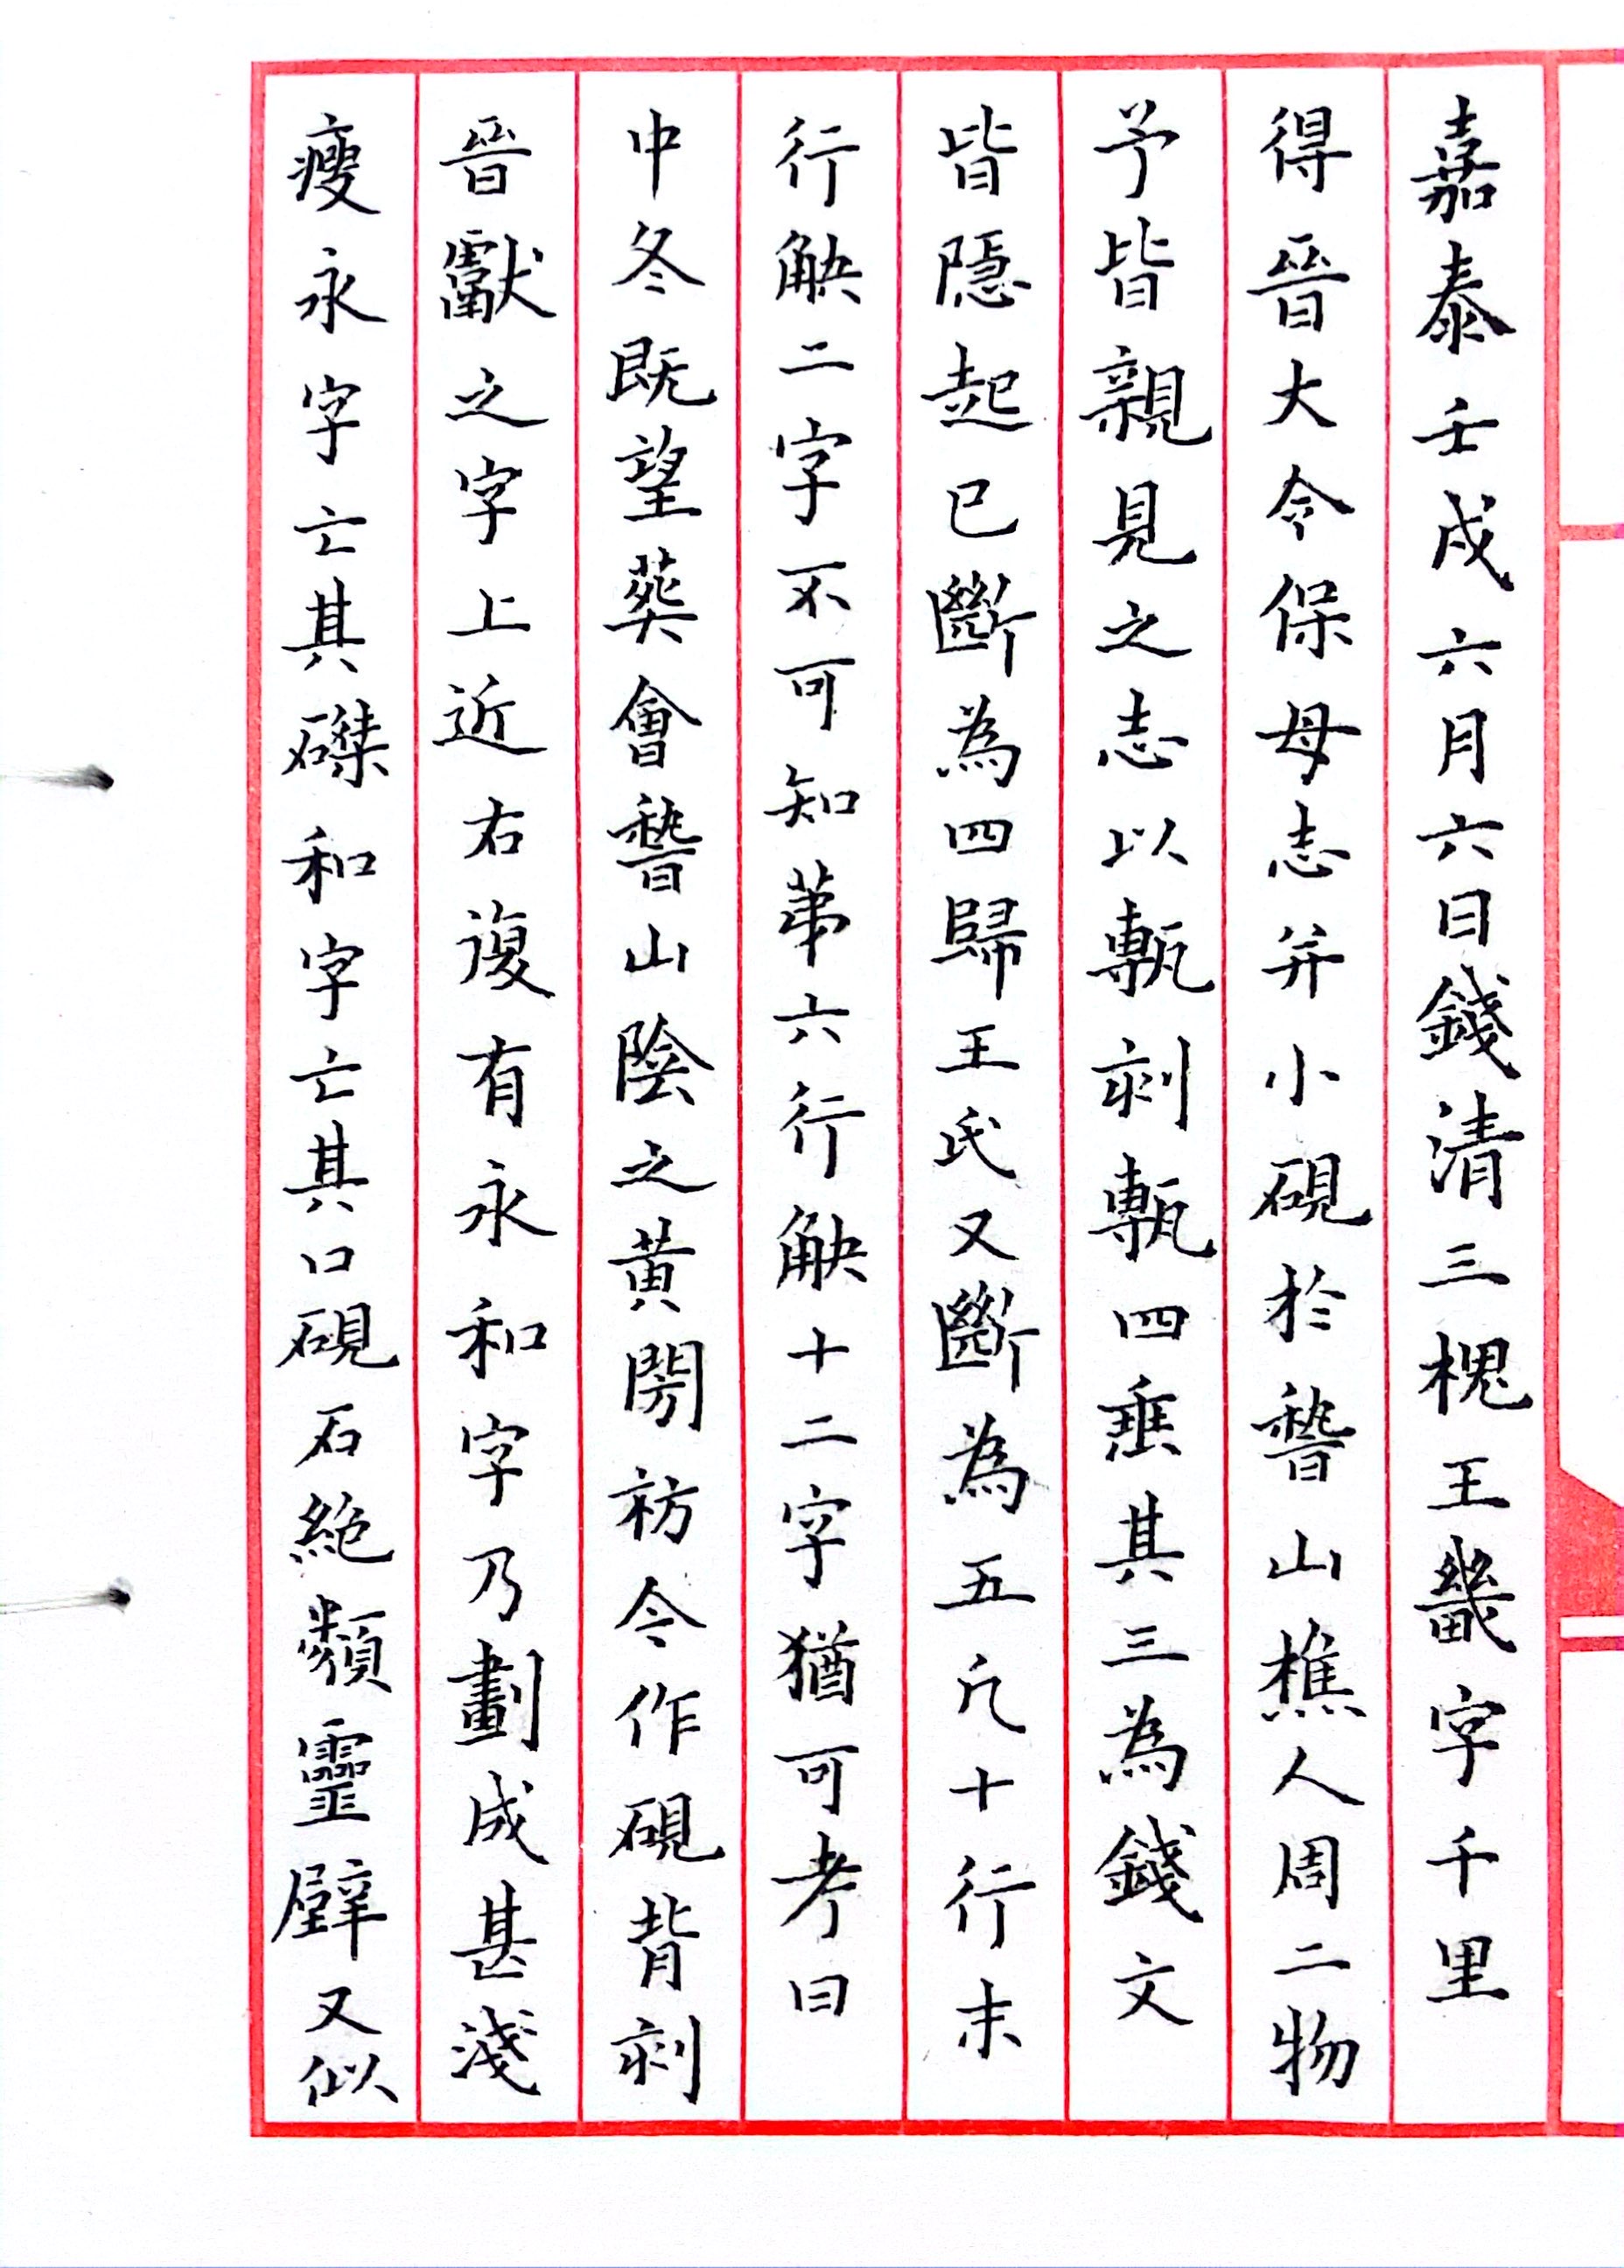 嘉泰壬戌六月六日錢清三槐王畿字千里
得晉大令保母志并小硯於嵆山樵人周二物
予皆親見之志以甎刻甎四垂其三為錢文
皆隱起已斷為四歸王氏又斷為五凡十行末
行缺二字不可知第六行缺十二字猶可考曰
中冬既望葬會嵆山陰之黃閍祊令作硯背刻
晉獻之字上近右復有永和字乃劃成甚淺
瘦永字亡其磔和字亡其口硯石絕類靈壁又似